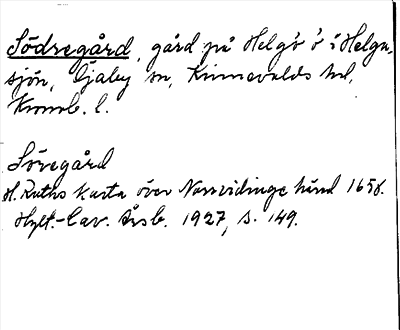 Södregård, gård på Helgö ö i Helga-
sjön, Öjaby sn, Kinnevalds hd,
Kronob. l.
Sövegård
H. Ruths karta över Norrvidinge härad 1658.
Hylt.-Cav. Årsb. 1927, s. 149.